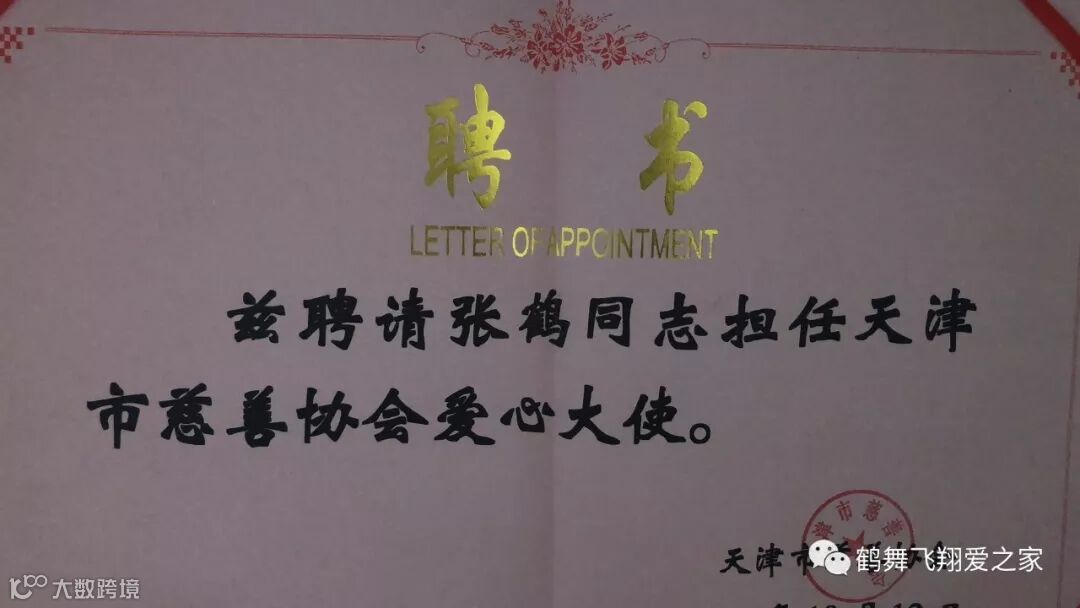 聘 书
LETTER OF APPOINTMENT
兹聘请张鹤同志担任天津
市慈善协会爱心大使。
津市慈善
天津市
鹤舞飞翔爱之家
大数跨境